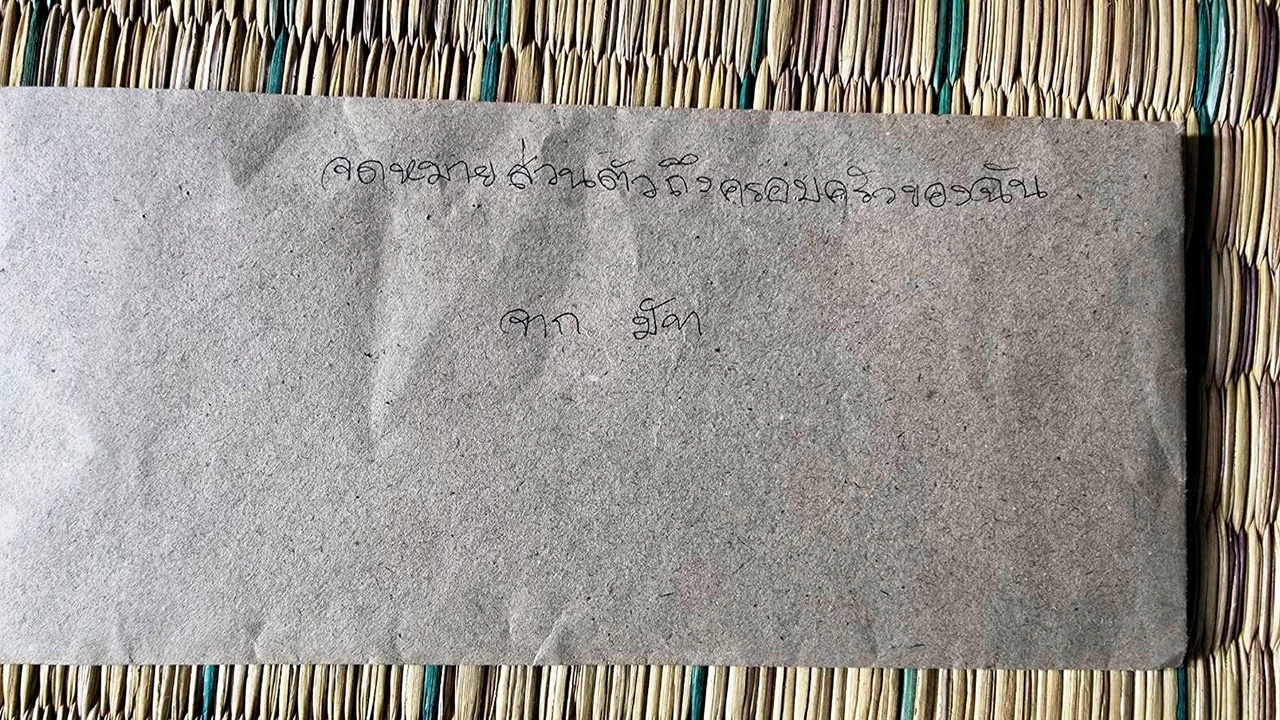 จดหมายส่วนตัวถึงครอบครัวของฉัน
จาก